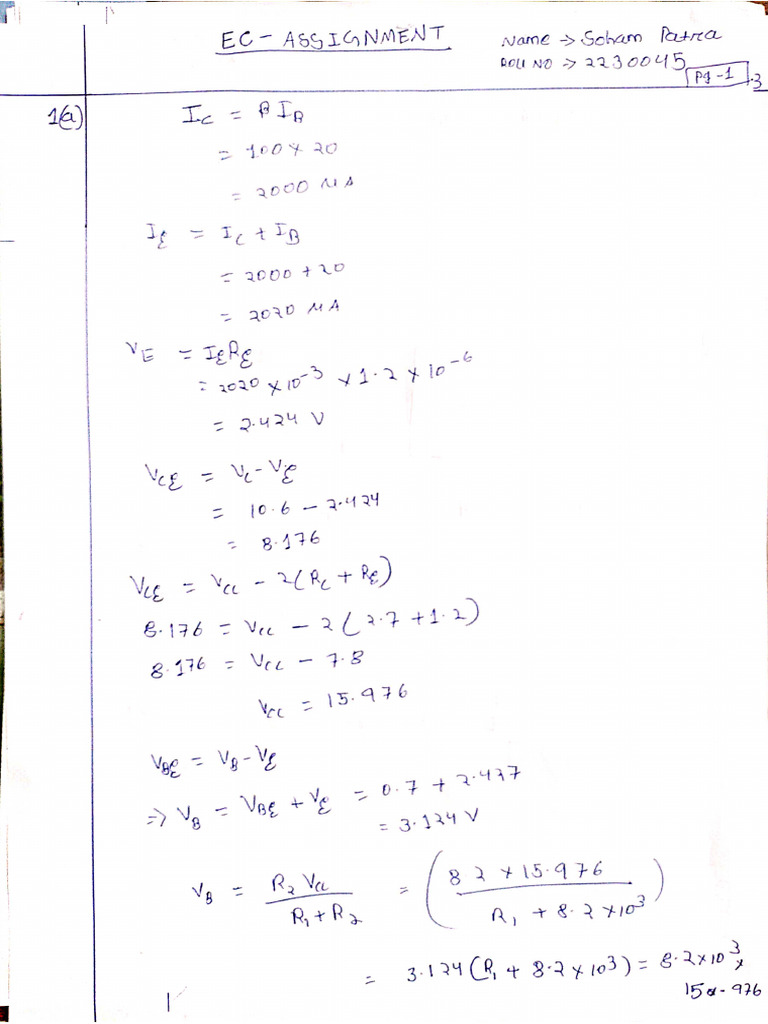 EC - ASSIGNMENT
Name → Soham Patra
ROLL NO → 2230045
Pg - 1
.3
1(a)
I_C = β I_B
= 100 × 20
= 2000 μA
I_E = I_C + I_B
= 2000 + 20
= 2020 μA
V_E = I_E R_E
= 2020 × 10^-3 × 1.2 × 10^-6
= 2.424 V
V_CE = V_C - V_E
= 10.6 - 2.424
= 8.176
V_CE = V_CC - 2(R_C + R_E)
8.176 = V_CC - 2(2.7 + 1.2)
8.176 = V_CC - 7.8
V_CC = 15.976
V_BE = V_B - V_E
⇒ V_B = V_BE + V_E = 0.7 + 2.427
= 3.124 V
V_B = R_2 V_CC / R_1 + R_2 = (8 2 × 15.976 / R_1 + 8.2 × 10^3)
= 3.124 (R_1 + 8.2 × 10^3) = 8.2 × 10^3 ×
15.976